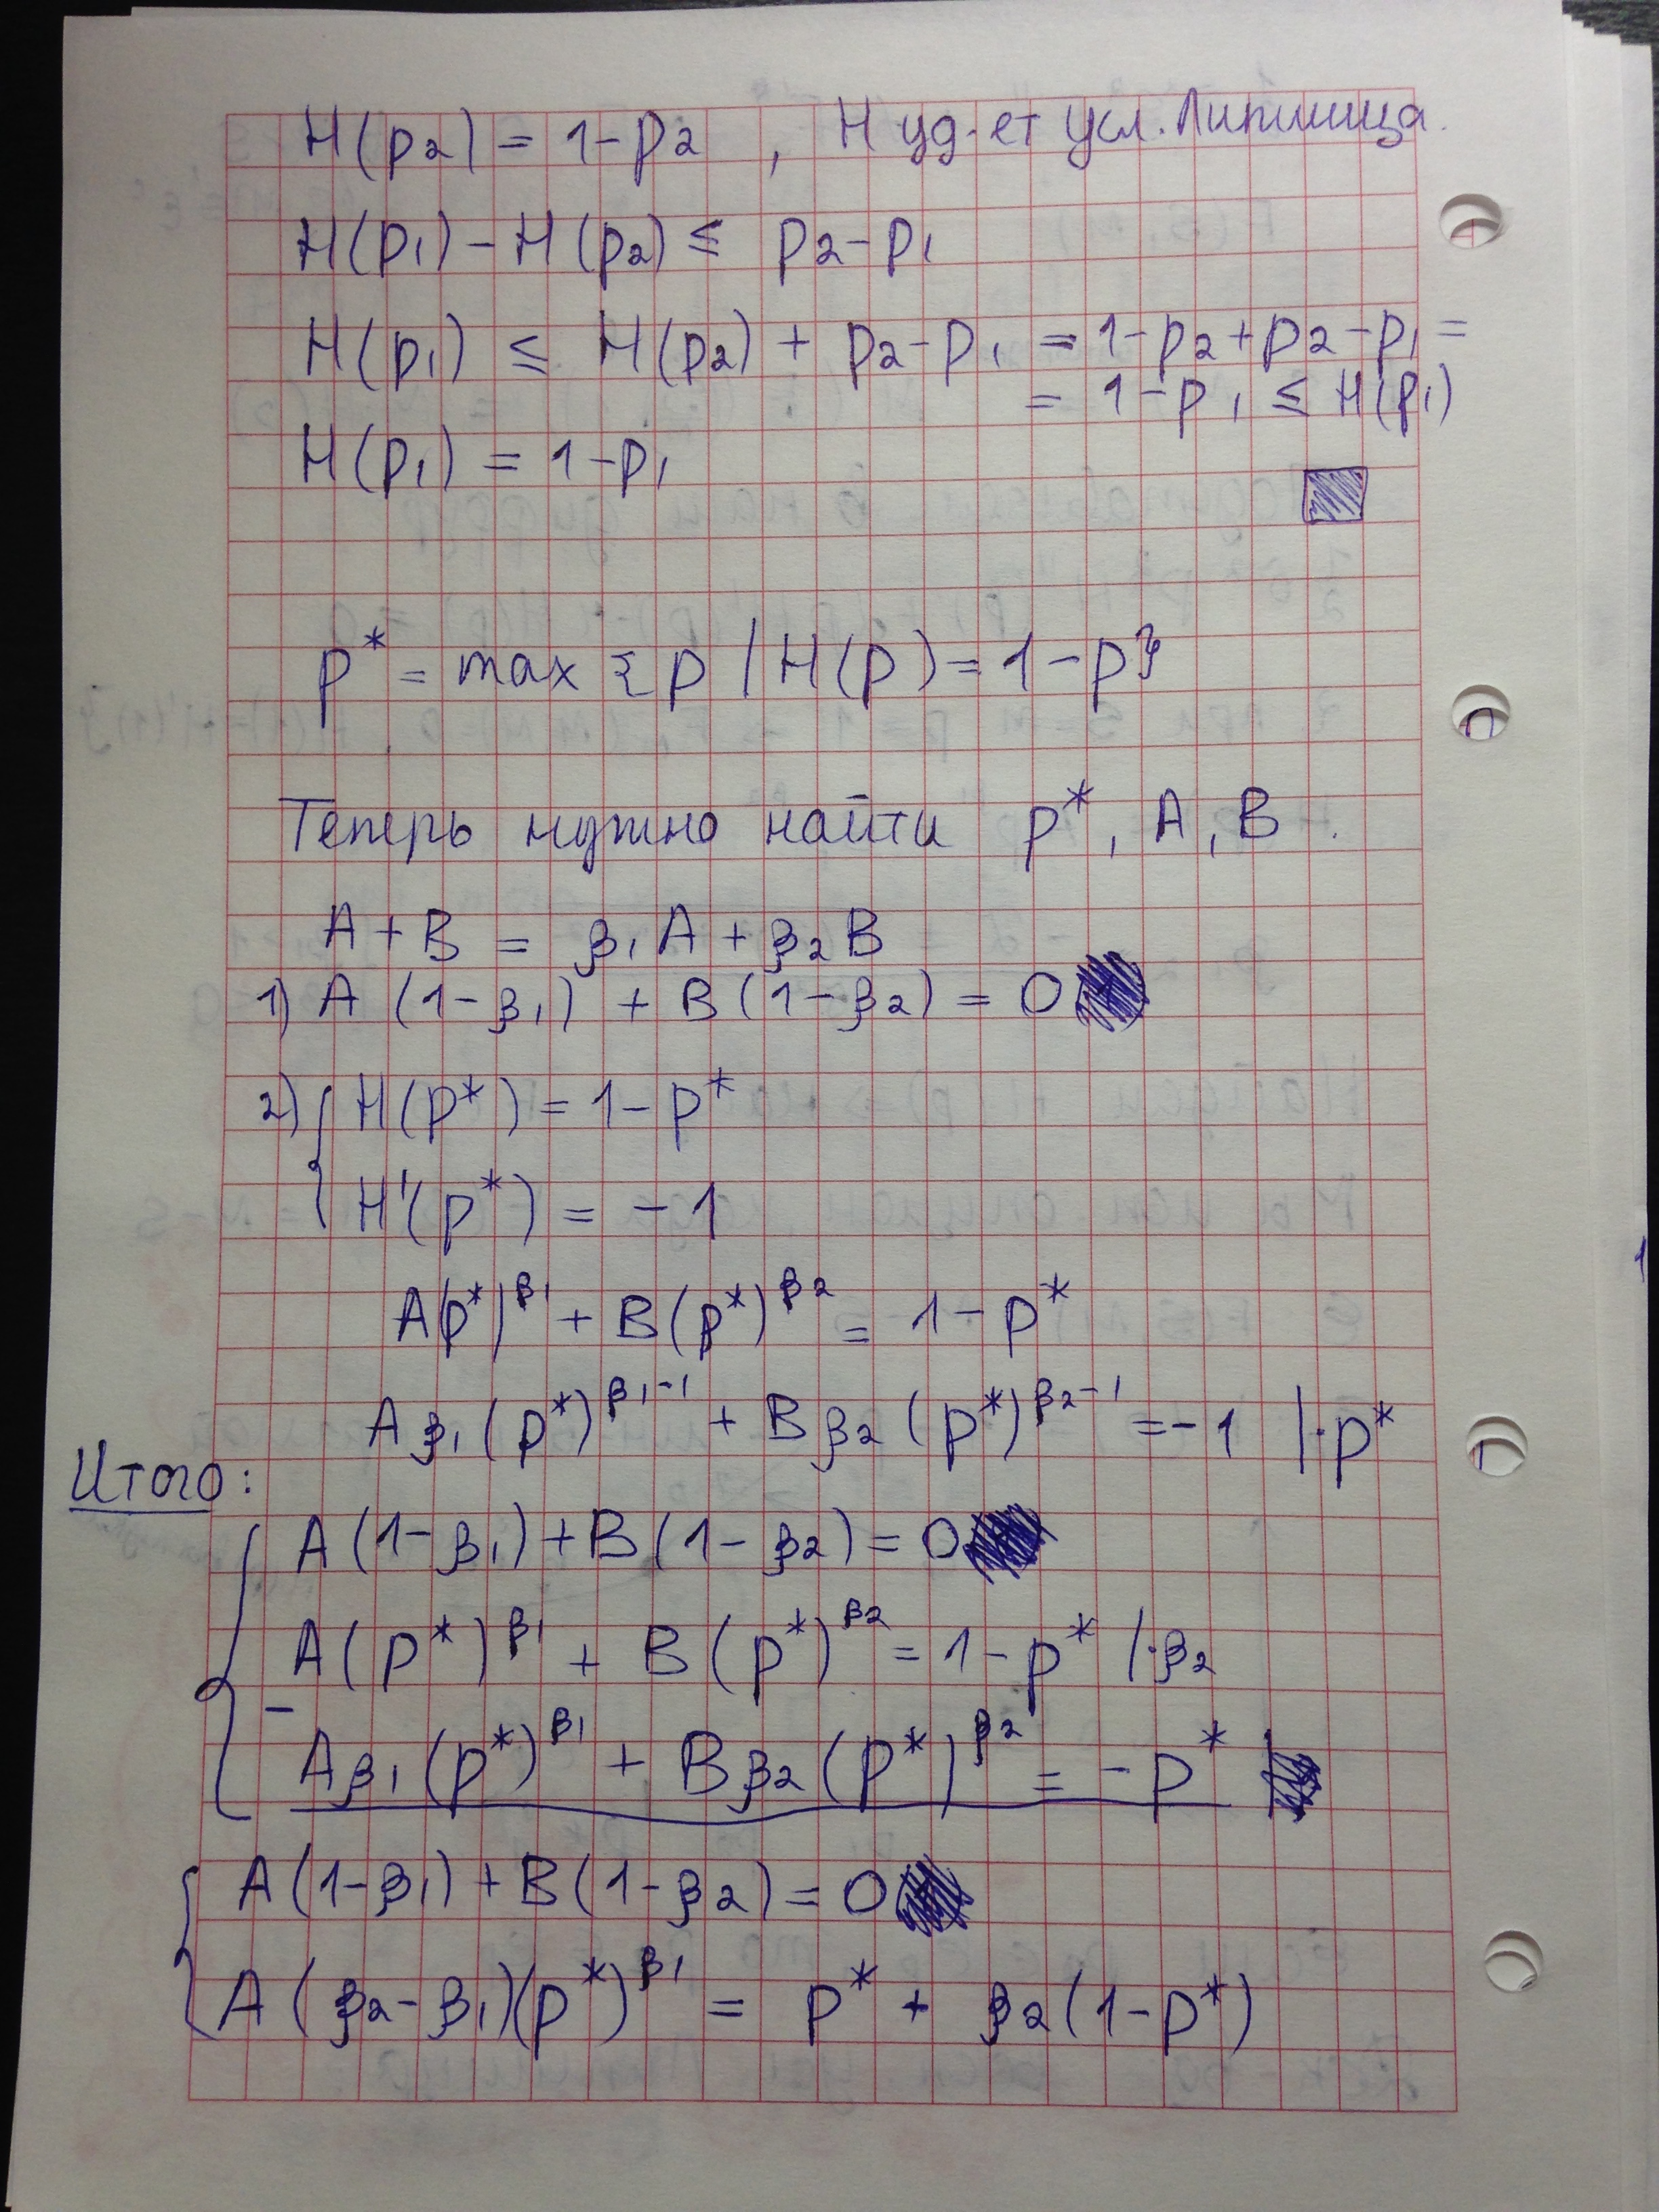 H(p₂) = 1-p₂ , H уд-ет усл. Липшица.
H(p₁) - H(p₂) ≤ p₂-p₁
H(p₁) ≤ H(p₂) + p₂-p₁ = 1-p₂+p₂-p₁ =
= 1-p₁ ≤ H(p₁)
H(p₁) = 1-p₁
p* = max {p | H(p) = 1-p}
Теперь нужно найти p*, A, B.
A + B = β₁A + β₂B
1) A (1-β₁) + B(1-β₂) = 0
2) { H(p*) = 1-p*
H'(p*) = -1
A(p*)^β₁ + B(p*)^β₂ = 1-p*
Aβ₁(p*)^(β₁-1) + Bβ₂(p*)^(β₂-1) = -1 |·p*
Итого:
{ A(1-β₁)+B(1-β₂)=0
A(p*)^β₁ + B(p*)^β₂ = 1-p* |·β₂
- Aβ₁(p*)^β₁ + Bβ₂(p*)^β₂ = -p*
{ A(1-β₁)+B(1-β₂)=0
A(β₂-β₁)(p*)^β₁ = p* + β₂(1-p*)